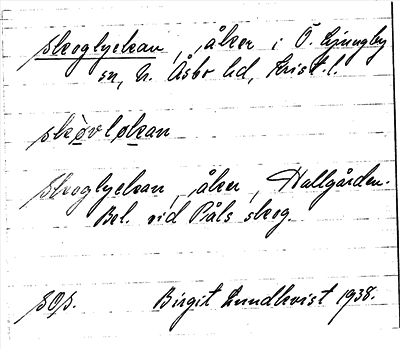 Skoglyckan, åker i Ö. Ljungby
sn, N. Åsbo hd, Krist. l.
skòvløkan
Skoglyckan, åker, Hallgården.
Bel. vid Påls skog.
Birgit Lundkvist 1938.